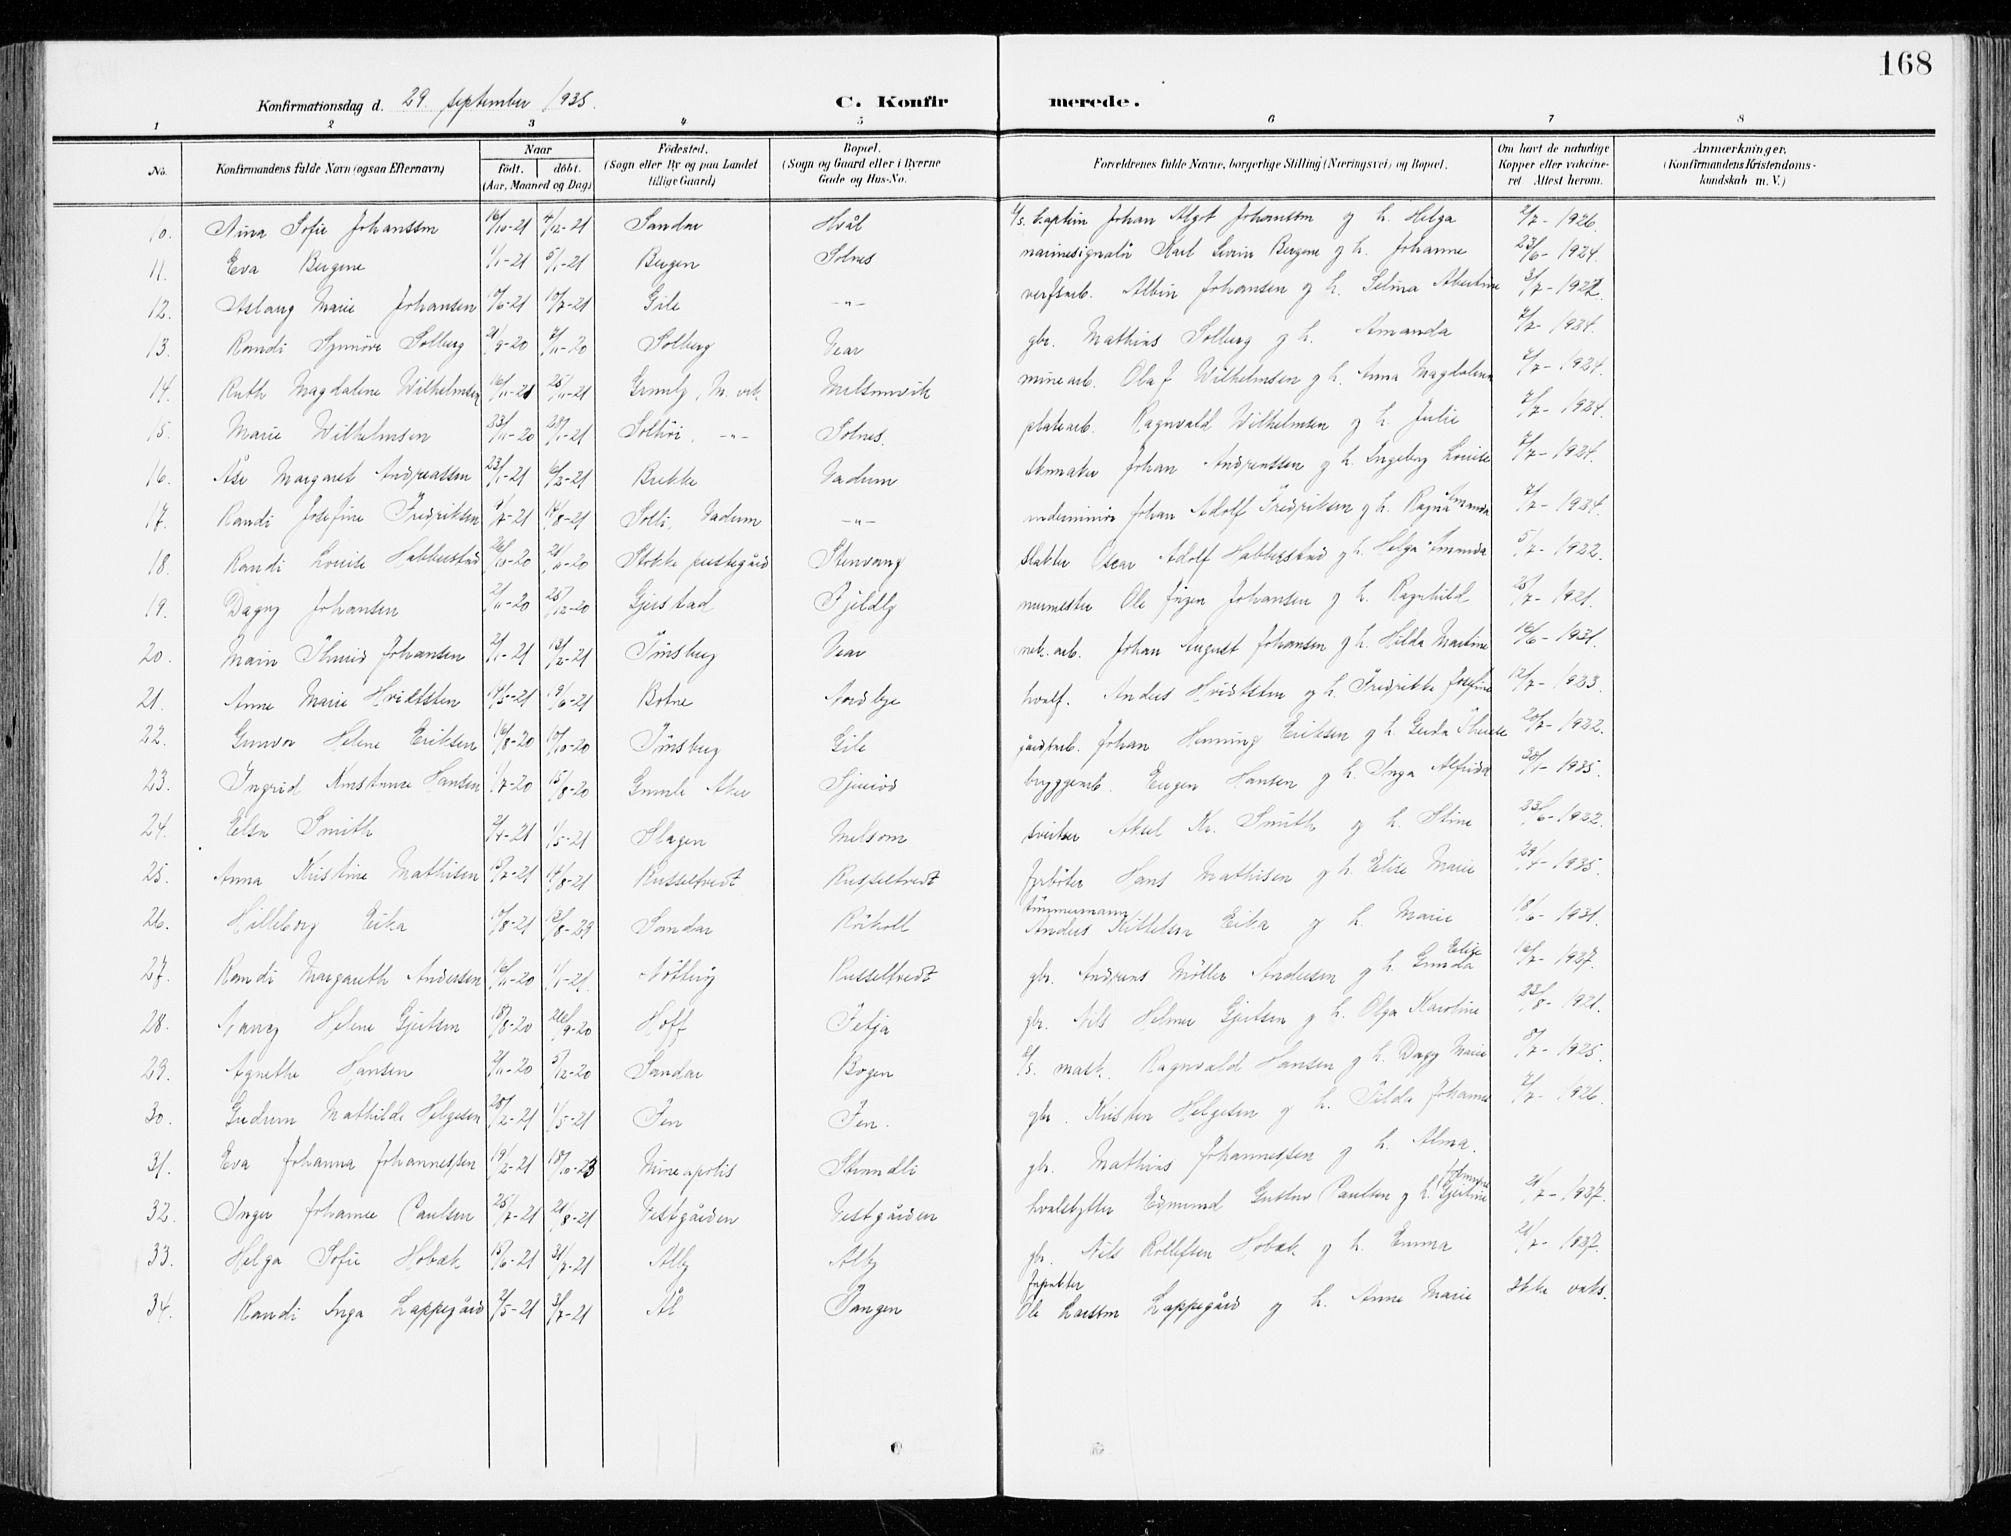 168
Konfirmationsdag d. 29. september 1935.
C. Konfirmerede.
1 2 3 4 5 6 7 8
No. Konfirmandens fulde Navn (ogsaa Efternavn) Naar født. døbt. (Aar, Maaned og Dag) Fødested. (Sogn eller By og paa Landet tillige Gaard) Bopæl. (Sogn og Gaard eller i Byerne Gade og Hus-No. Forældrenes fulde Navne, borgerlige Stilling (Næringsvei) og Bopæl. Om havt de naturlige Kopper eller vakcineret. Attest herom. Anmærkninger. (Konfirmandens Kristendomskundskab m. V.)
10. Nina Sofie Johanssen 16/10-21 4/12-21 Sandar Hvål Johan Algot Johanssen og h. Helga 2/7-1926.
11. Eva Bergene 1/1-21 5/1-21 Bergen Solnes marinesignalør Karl Bergene og h. Johanne 23/6-1924.
12. Aslaug Marie Johansen 10/6-21 10/7-21 Gile -"- verfsarb. Albin Johansen og h. Selma Albertine 3/7-1922.
13. Randi Synnøve Solberg 21/9-20 7/11-20 Solberg Vear gbr. Mathias Solberg og h. Amanda 7/7-1924.
14. Ruth Magdalene Wilhelmsen 16/11-21 25/11-21 Melsomvik minearb. Olaf Wilhelmsen og h. Anna Magdalena 7/7-1924.
15. Marie Wilhelmsen 23/11-20 29/1-21 -"- Solnes. platearb. Ragnvald Wilhelmsen og h. Julie 7/7-1924.
16. Åse Margaret Andreassen 23/1-21 6/2-21 Brekke Vadum skomaker Johan Andreassen og h. Ingeborg Louise 7/7-1924.
17. Randi Josefine Fredriksen 9/7-21 14/8-21 Solli, Vadum -"- underminør Johan Adolf Fredriksen og h. Ragna Amanda 7/7-1924.
18. Randi Louise Habberstad 26/10-20 21/11-20 Stokke prestegård Stenvang slakter Oscar Adolf Habberstad og h. Helga Amanda 5/7-1922.
19. Dagny Johansen 2/11-20 25/12-20 Gjerstad Fjeldly murmester Ole Johansen og h. Ragnhild 25/7-1921.
20. Thurid Johansen 2/1-21 13/2-21 Tønsberg Vear mek. arb. Johan August Johansen og h. Hilda Martine 16/6-1931.
21. Anne Marie Hvidtsten 14/5-21 19/6-21 Botne Nordbye hvalf. Anders Hvidtsten og h. Fredrikke Josefine 12/7-1933.
22. Gunvor Helene Eriksen 16/8-20 10/10-20 Tønsberg Gile Johan Henning Eriksen og h. Gerda Therese 20/7-1922.
23. Ingrid Konstanse Hansen 1/7-20 15/8-20 Gamle Aker bryggearb. Eugen Hansen og h. Inga Alfrida 1935.
24. Elsa Smith 2/4-21 1/5-21 Slagen Melsom Aksel Kr. Smith og h. Stine 23/6-1932.
25. Anna Kristine Mathisen 15/7-21 14/8-21 Russeltvedt Russeltvedt fyrbøter Hans Mathisen og h. Elise Marie 29/4-1935.
26. Hilleborg Eika 10/8-21 13/8-29 Sandar Råstoll tømmermann Anders Kittelsen Eika og h. Marie 18/6-1931.
27. Randi Margareth Andersen 16/11-20 1/1-21. Nøtterø Russeltvedt gbr. Andreas Möller Andersen og h. Gunda Elise 16/7-1937.
28. Nancy Helene Gjertsen 18/8-20 26/9-20 Hoff Fetja gbr. Nils Helmer Gjertsen og h. Olga Karoline 23/8-1921.
29. Agnethe Hansen 2/11-20 5/12-20 Sandar Bogen mask. Ragnvald Hansen og h. Dagny Marie 8/7-1925.
30. Gudrun Mathilde Helgesen 28/2-21 1/5-21 Fen Fen. gbr. Kristen Helgesen og h. Tilda Johanne 7/7-1926.
31. Eva Johanna Johannessen 19/2-21 18/10-23 Mineapolis Strandli gbr. Mathias Johannessen og h. Alma.
32. Inger Johanne Paulsen 25/7-21 21/8-21 Vestgården Vestgården hvalskytter Edmund Gustav Paulsen og h. Gjertine Johanne 21/7-1937.
33. Helga Sofie Hobæk 15/6-21 31/7-21 Alby Alby gbr. Nils Rollefsen Hobæk og h. Emma 21/7-1937.
34. Randi Inga Lappegård 2/5-21 3/7-21 Ål Tangen Ole Larsson Lappegård og h. Anne Marie Ikke vaks.